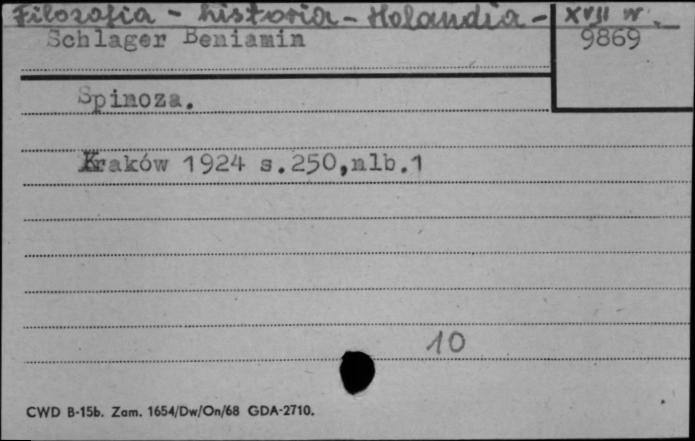 Filozofia - historia - Holandia - XVII w.
Schlager Beniamin
9869
Spinoza.
Kraków 1924 s.250,nlb.1
10
CWD B-15b. Zam. 1654/Dw/On/68 GDA-2710.